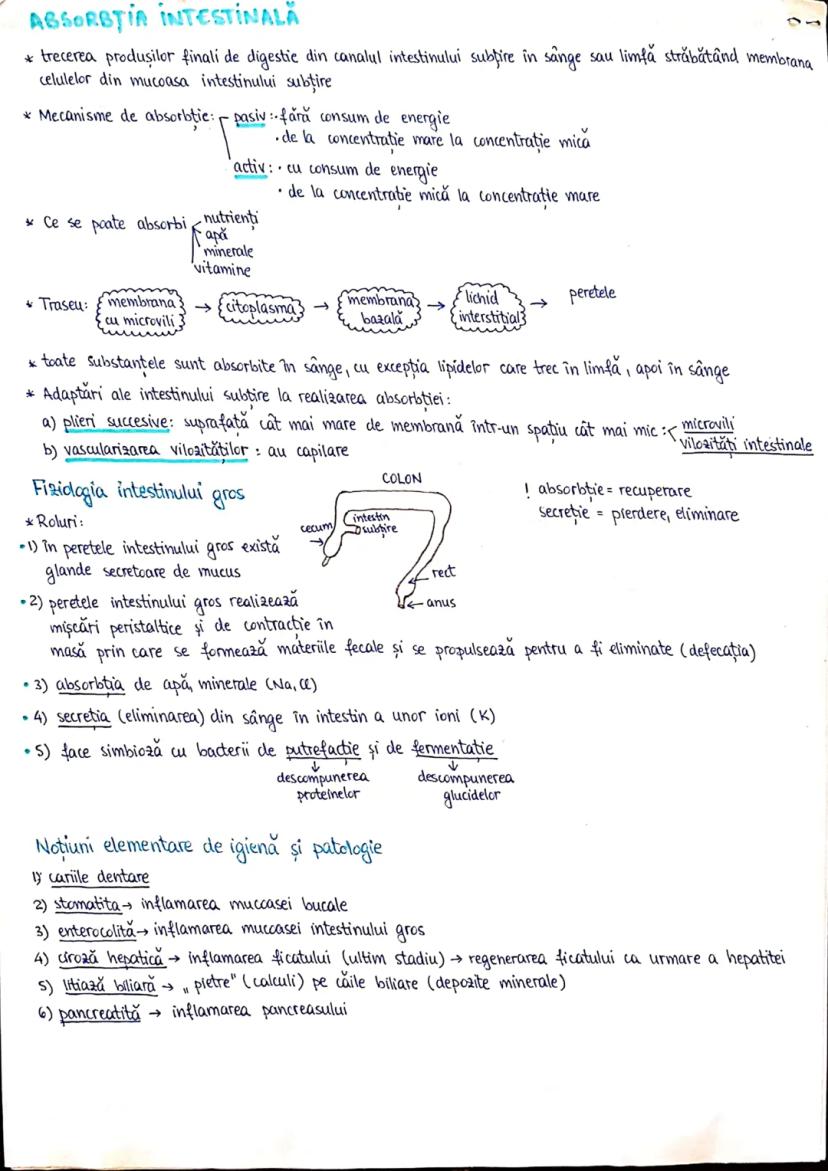 ABSORBȚIA INTESTINALĂ
* trecerea produșilor finali de digestie din canalul intestinului subțire în sânge sau limfă străbătând membrana
celulelor din mucoasa intestinului subțire
* Mecanisme de absorbție: pasiv: • fără consum de energie
• de la concentrație mare la concentrație mică
activ: • cu consum de energie
• de la concentrație mică la concentrație mare
* Ce se poate absorbi nutrienți
apă
minerale
vitamine
* Traseu: membrană cu microvili → citoplasmă → membrană bazală → lichid interstițial → peretele
* toate substanțele sunt absorbite în sânge, cu excepția lipidelor care trec în limfă, apoi în sânge
* Adaptări ale intestinului subțire la realizarea absorbției:
a) plieri succesive: suprafață cât mai mare de membrană într-un spațiu cât mai mic: microvili
vilozități intestinale
b) vascularizarea vilozităților: au capilare
Fiziologia intestinului gros
COLON
cecum
intestin
subțire
rect
anus
! absorbție = recuperare
secreție = pierdere, eliminare
* Roluri:
• 1) în peretele intestinului gros există
glande secretoare de mucus
• 2) peretele intestinului gros realizează
mișcări peristaltice și de contracție în
masă prin care se formează materiile fecale și se propulsează pentru a fi eliminate (defecația)
• 3) absorbția de apă, minerale (Na, Cl)
• 4) secreția (eliminarea) din sânge în intestin a unor ioni (K)
• 5) face simbioză cu bacterii de putrefacție și de fermentație
↓ ↓
descompunerea descompunerea
proteinelor glucidelor
Noțiuni elementare de igienă și patologie
1) cariile dentare
2) stomatita → inflamarea mucoasei bucale
3) enterocolită → inflamarea mucoasei intestinului gros
4) ciroză hepatică → inflamarea ficatului (ultim stadiu) → regenerarea ficatului ca urmare a hepatitei
5) litiază biliară → „pietre" (calculi) pe căile biliare (depozite minerale)
6) pancreatită → inflamarea pancreasului